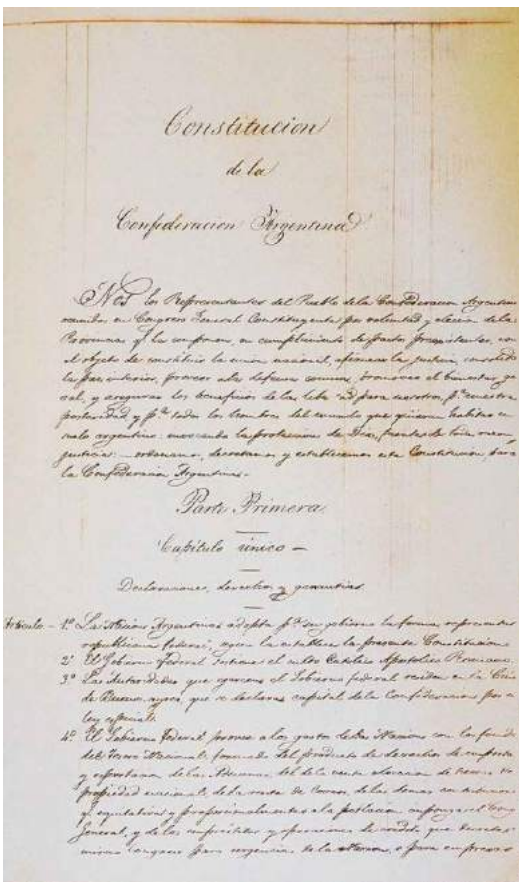 Constitucion
de la
Confederacion Argentina
Nos los Representantes del Pueblo de la Confederacion Argentina
reunidos en Congreso General Constituyente por voluntad y eleccion de la
Provincias q.e la componen, en cumplimiento de pactos preexistentes, con
el objeto de constituir la union nacional, afianzar la justicia, consolida
la paz interior, proveer a la defensa comun, promover el bienestar
ral, y asegurar los beneficios de la libertad para nosotros, p.a nuestra
posteridad y p.a todos los hombres del mundo que quieran habitar en
suelo argentino: invocando la proteccion de Dios, fuente de toda razon
justicia: ordenamos, decretamos y establecemos esta Constitucion para
la Confederacion Argentina.
Parte Primera
Capítulo único —
Declaraciones, derechos y garantias
Articulo — 1º La Nacion Argentina adopta p.a su gobierno la forma
republicana federal, segun la establece la presente Constitucion
2º El Gobierno federal sostiene el culto Catolico Apostolico Romano.
3º Las Autoridades que ejercen el Gobierno federal residen en la
de Buenos ayres, que se declara capital de la Confederacion por
ley especial.
4º El Gobierno federal provee a los gastos de la Nacion con los fondos
del Tesoro Nacional formado del producto de derechos de
y esportacion de las Aduanas, del de la venta
propiedad nacional, de la renta de Correos, de las demas
y proporcionalmente a la poblacion
General, y de los emprestitos y operaciones de credito que
mismo Congreso para urgencias de la Nacion, o para empresas